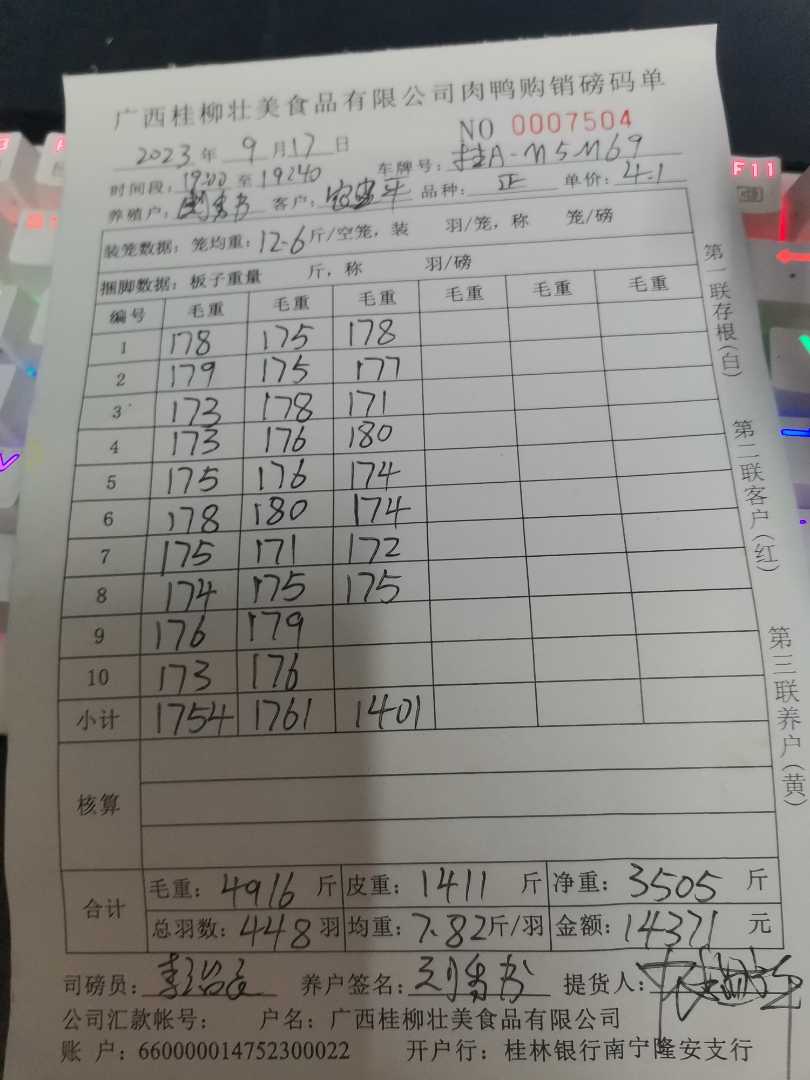 广西桂柳壮美食品有限公司肉鸭购销磅码单
NO 0007504
2023 年 9 月 17 日
时间段: 19:00 至 19240 车牌号: 桂A-M5M69
养殖户: 客户: 品种: 正 单价: 4.1
装笼数据: 笼均重: 12.6 斤/空笼, 装 羽/笼, 称 笼/磅
捆脚数据: 板子重量 斤, 称 羽/磅
编号 毛重 毛重 毛重 毛重 毛重 毛重
1 178 175 178
2 179 175 177
3 173 178 171
4 173 176 180
5 175 176 174
6 178 180 174
7 175 171 172
8 174 175 175
9 176 179
10 173 176
小计 1754 1761 1401
核算
合计
毛重: 4916 斤 皮重: 1411 斤 净重: 3505 斤
总羽数: 448 羽 均重: 7.82 斤/羽 金额: 14371 元
司磅员: 养户签名: 提货人:
公司汇款帐号: 户名: 广西桂柳壮美食品有限公司
账 户: 660000014752300022 开户行: 桂林银行南宁隆安支行
第一联存根(白)
第二联客户(红)
第三联养户(黄)
F11